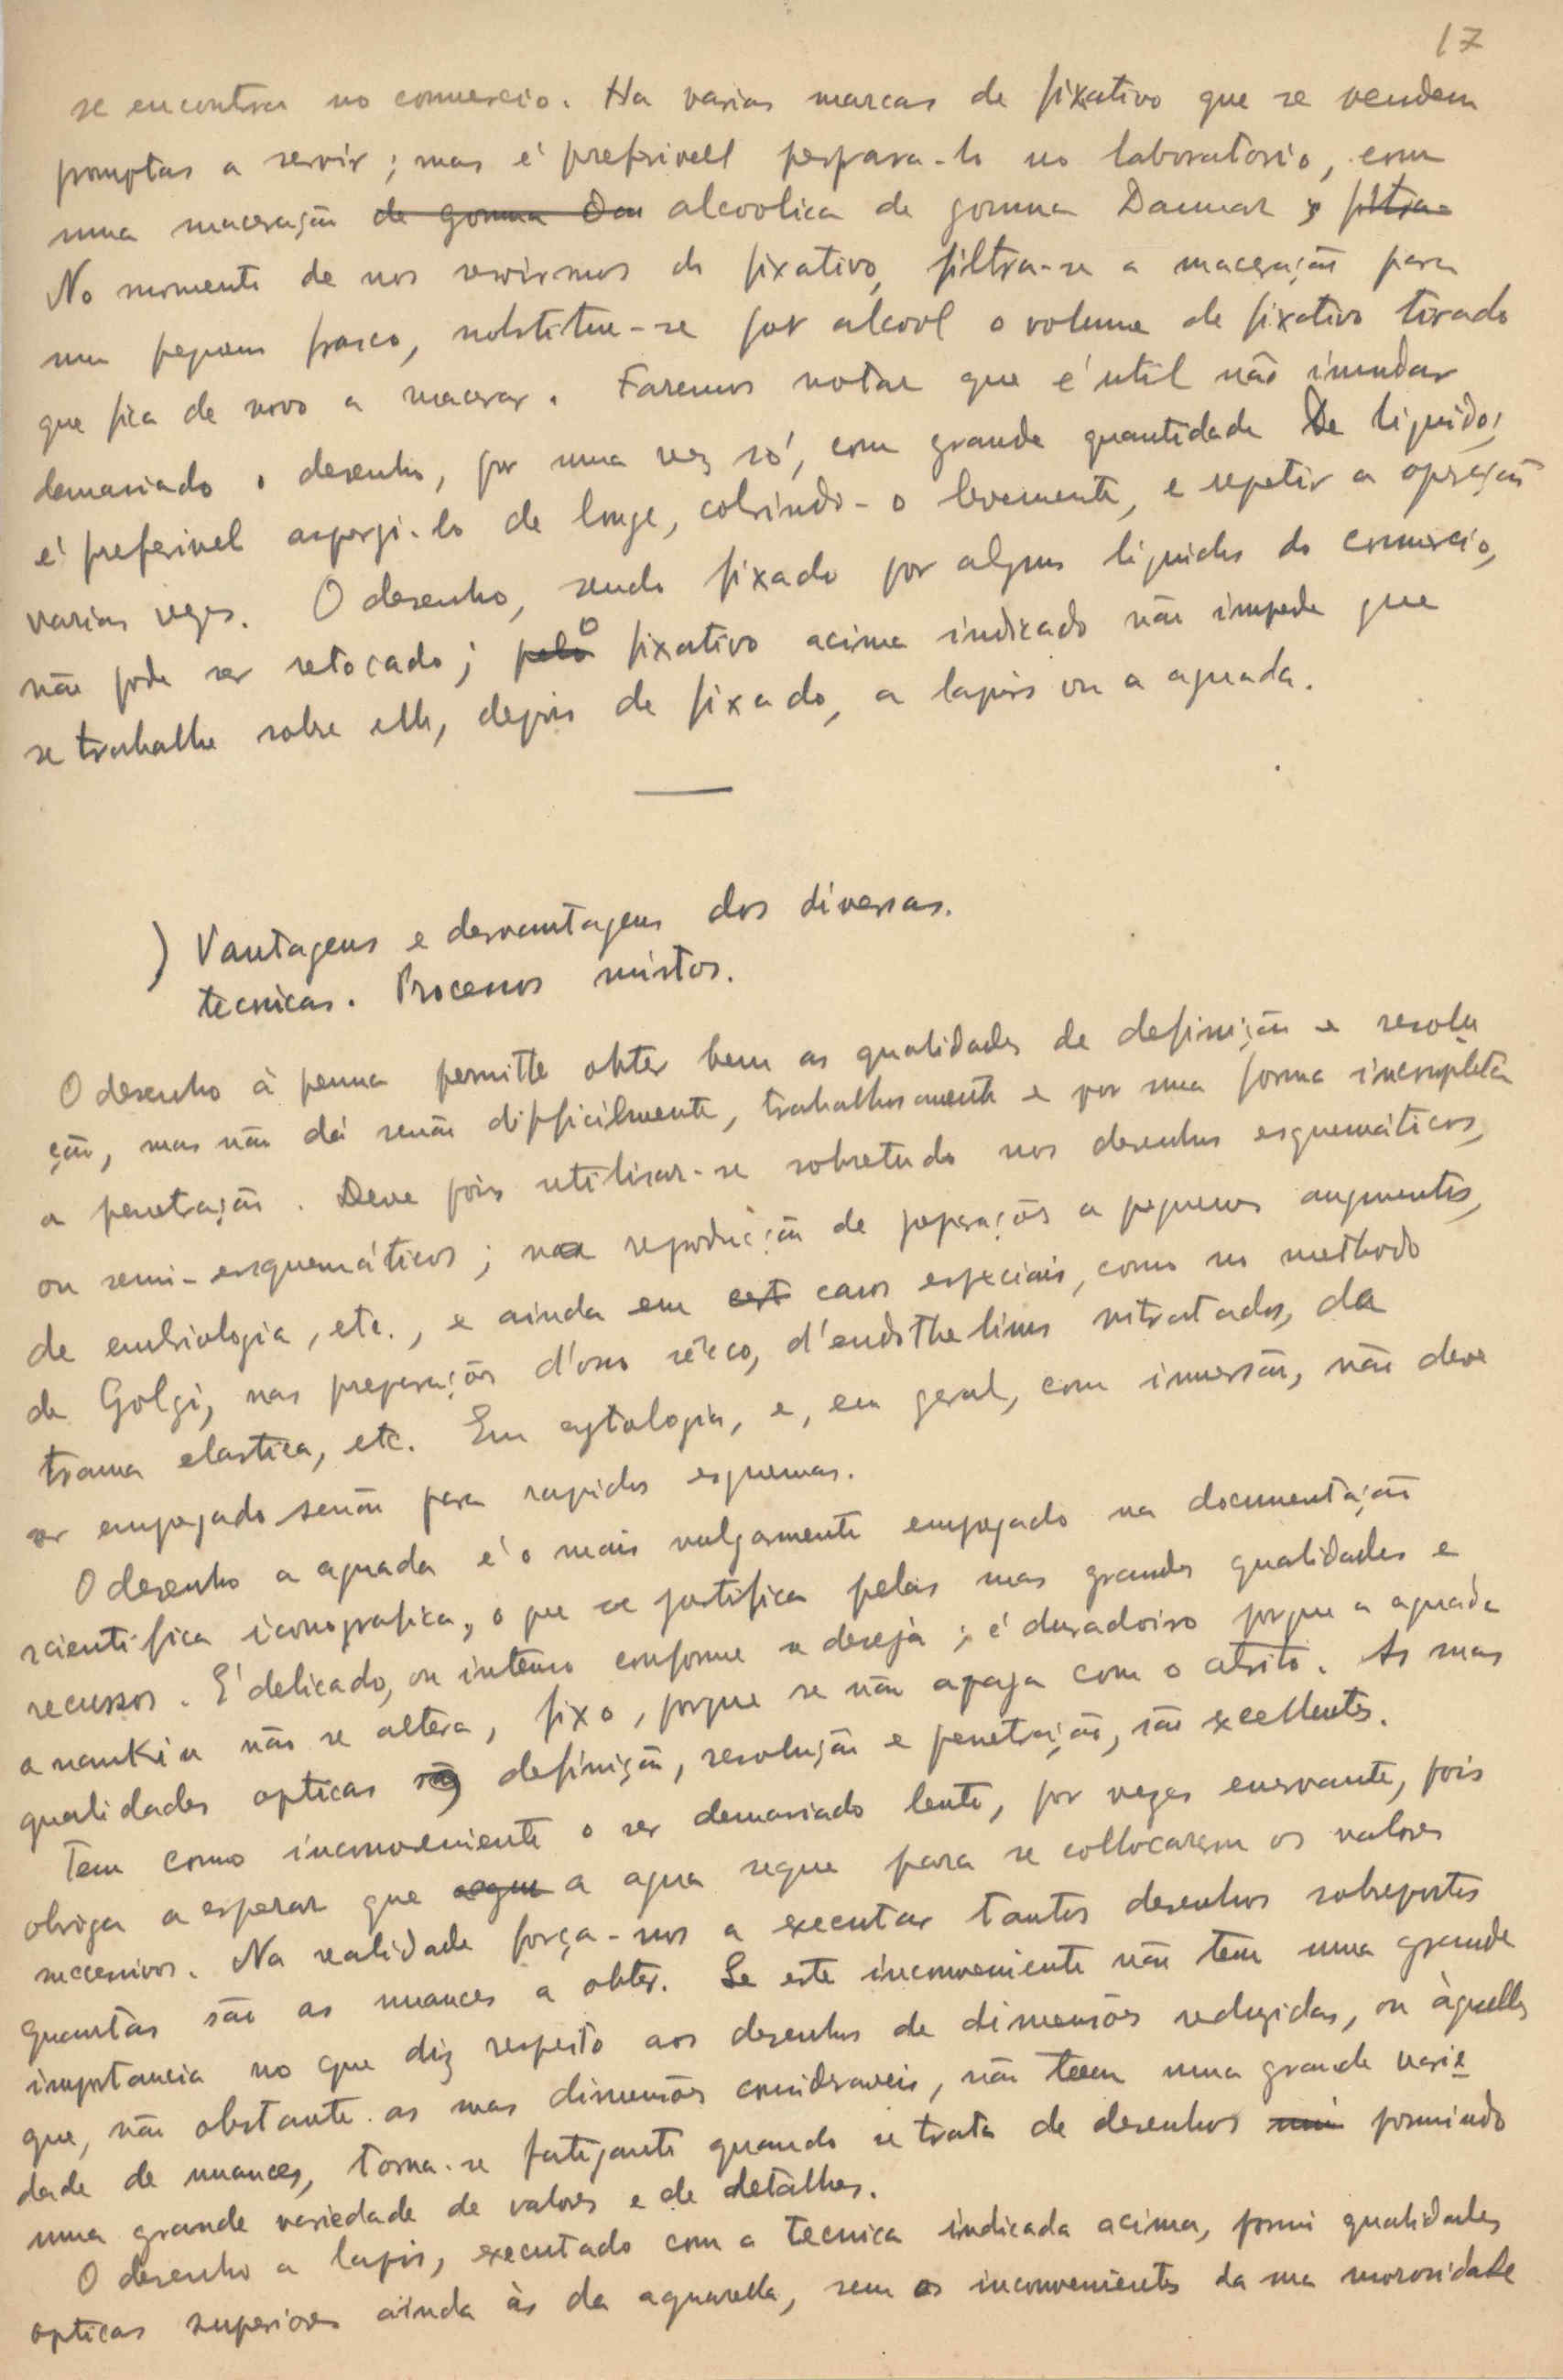 17
se encontra no comercio. Ha varias marcas de fixativo que se vendem
promptas a servir; mas é preferivel prepara-lo no laboratorio, com
uma maceração de gomma Dam alcoolica de gomma Dammar; filtra-
No momento de nos servirmos do fixativo, filtra-se a maceração para
um pequeno frasco, substitue-se por alcool o volume de fixativo tirado
que fica de novo a macerar. Faremos notar que é util não inundar
demasiado o desenho, por uma vez só, com grande quantidade de liquido;
é preferivel aspergi-lo de longe, cobrindo-o levemente, e repetir a operação
varias vezes. O desenho, sendo fixado por alguns liquidos do comercio,
não pode ser retocado; pelo o fixativo acima indicado não impede que
se trabalhe sobre elle, depois de fixado, a lapis ou a aguada.
) Vantagens e desvantagens das diversas.
tecnicas. Processos mistos.
O desenho à penna permitte obter bem as qualidades de definição e resolu
ção, mas não dá senão difficilmente, trabalhosamente e por uma forma incompleta
a penetração. Deve pois utilisar-se sobretudo nos desenhos esquemáticos,
ou semi-esquemáticos; na reprodução de preparações a pequenos augmentos,
de embriologia, etc., e ainda em cert casos especiais, como no methodo
de Golgi, nas preparações d'osso sêcco, d'endothelios nitratados, da
trama elastica, etc. Em cytologia, e, em geral, com immersão, não deve
ser empregado senão para rapidos esquemas.
O desenho a aguada é o mais vulgarmente empregado na documentação
scientifica iconografica, o que se justifica pelas suas grandes qualidades e
recursos. É delicado, ou intenso conforme se deseja; é duradoiro porque a aguada
a nankin não se altera, fixo, porque se não apaga com o atrito. As suas
qualidades opticas são definição, resolução e penetração, são excellentes.
Tem como inconveniente o ser demasiado lento, por vezes enervante, pois
obriga a esperar que a agua seque para se collocarem os valores
successivos. Na realidade força-nos a executar tantos desenhos sobrepostos
quantas são as nuances a obter. Se este inconveniente não tem uma grande
importancia no que diz respeito aos desenhos de dimensões reduzidas, ou àquelles
que, não obstante as suas dimensões consideraveis, não teem uma grande varie
dade de nuances, torna-se fatigante quando se trata de desenhos possuindo
uma grande variedade de valores e de detalhes.
O desenho a lapis, executado com a tecnica indicada acima, possui qualidades
opticas superiores ainda às da aguarella, sem os inconvenientes da sua morosidade